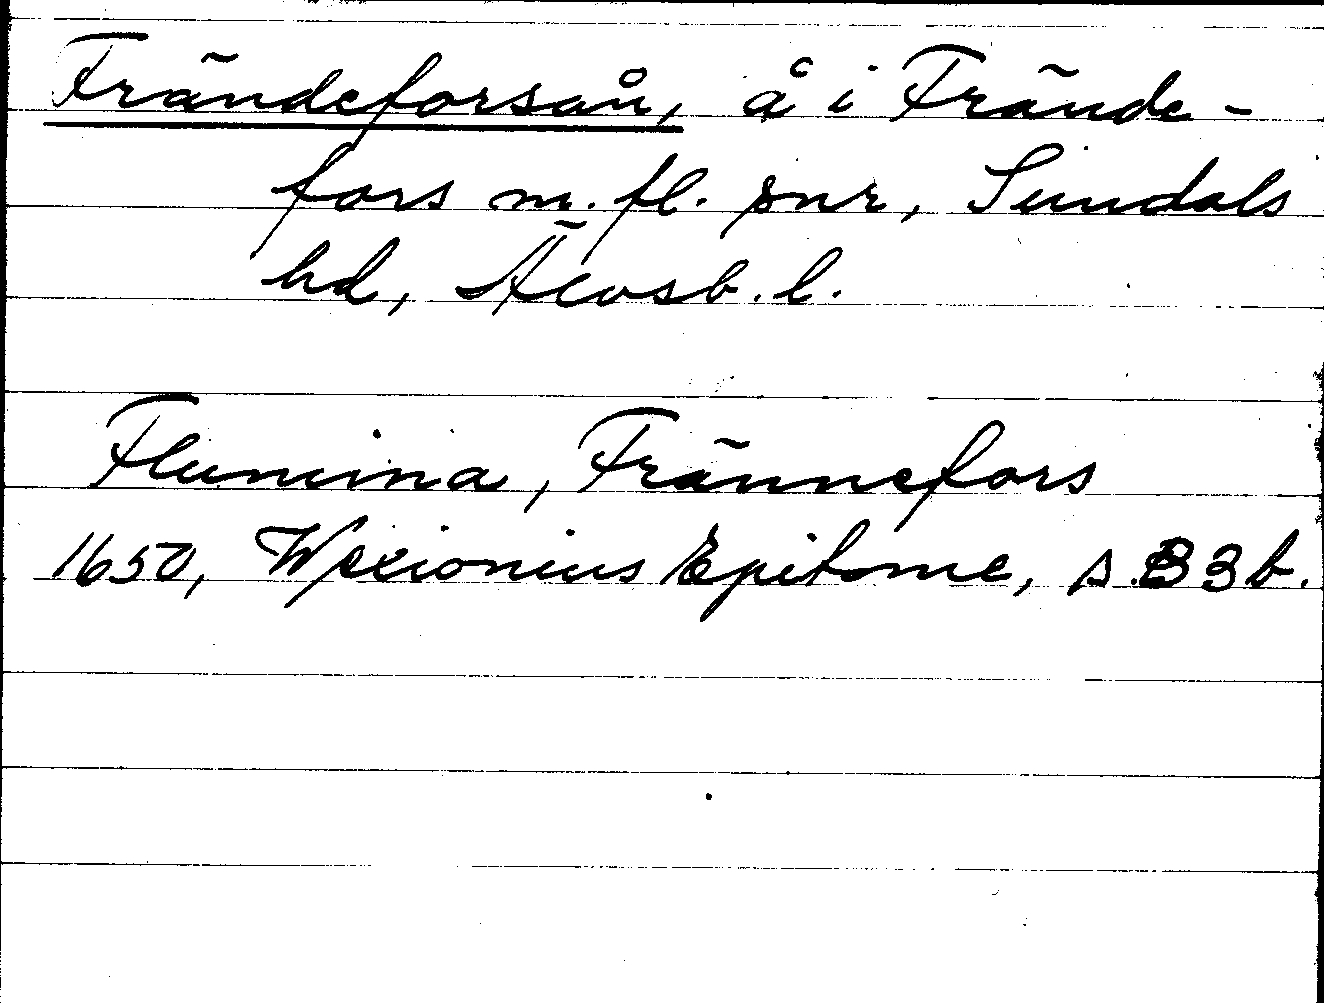 Frändeforsån, å i Frände-
fors m. fl. snr, Sundals
hd, Älvsb. l.
Flumina, Frännefors
1650, Wexionius Epitome, s. B 3 b.